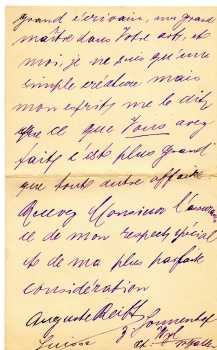 grand écrivain, un grand
maître dans Votre art, et
moi, je ne suis qu'une
simple créature mais
mon esprit me le dit,
que ce que Vous avez
fait, c'est plus grand
que tout autre affaire
Recevez Monsieur l'assuran
ce de mon respect spécial
et de ma plus parfaite
considération
Auguste
Suisse